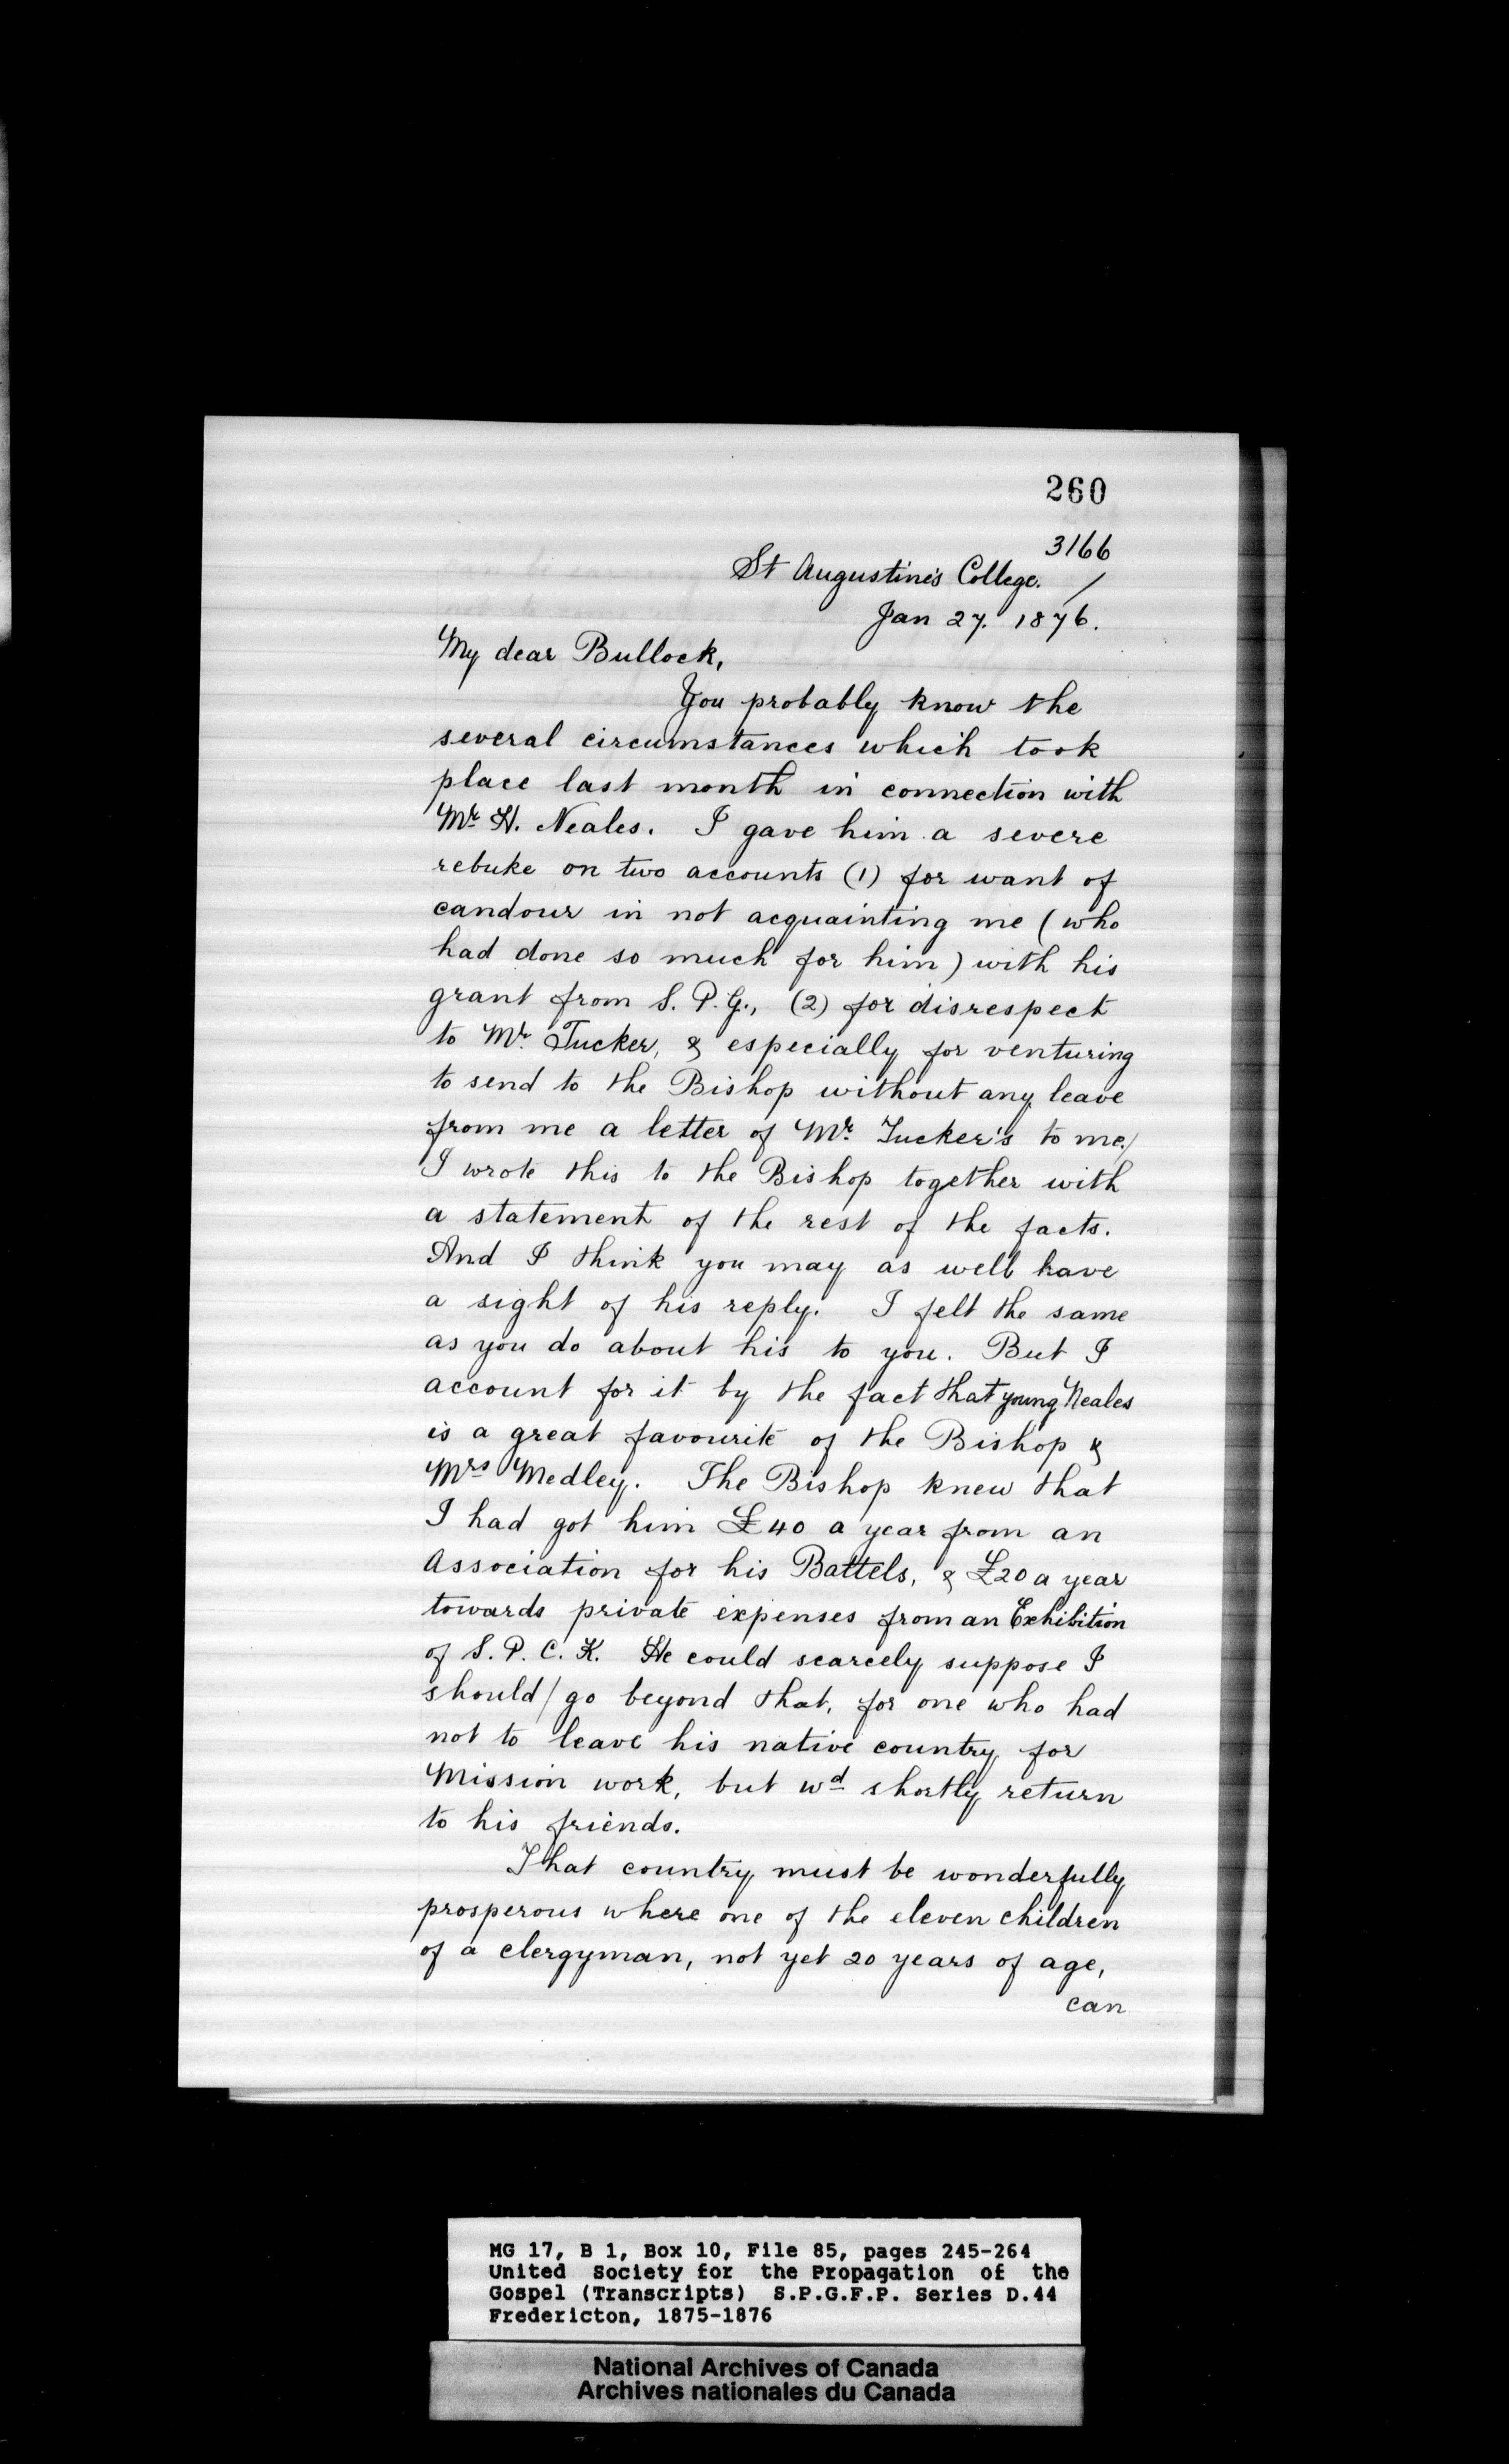 260
3166
St Augustine's College. /
Jan 27. 1876.
My dear Bullock,
You probably know the
several circumstances which took
place last month in connection with
Mr. H. Neales. I gave him a severe
rebuke on two accounts (1) for want of
candour in not acquainting me (who
had done so much for him) with his
grant from S. P. G., (2) for disrespect
to Mr. Tucker, & especially for venturing
to send to the Bishop without any leave
from me a letter of Mr. Tucker's to me./
I wrote this to the Bishop together with
a statement of the rest of the facts.
And I think you may as well have
a sight of his reply. I felt the same
as you do about his to you. But I
account for it by the fact that young Neales
is a great favourite of the Bishop &
Mrs Medley. The Bishop knew that
I had got him £40 a year from an
Association for his Battels, & £20 a year
towards private expenses from an Exhibition
of S. P. C. K. He could scarcely suppose I
should/go beyond that, for one who had
not to leave his native country for
Mission work, but wd shortly return
to his friends.
That country must be wonderfully
prosperous where one of the eleven children
of a clergyman, not yet 20 years of age,
can
MG 17, B 1, Box 10, File 85, pages 245-264
United Society for the Propagation of the
Gospel (Transcripts) S.P.G.F.P. Series D.44
Fredericton, 1875-1876
National Archives of Canada
Archives nationales du Canada